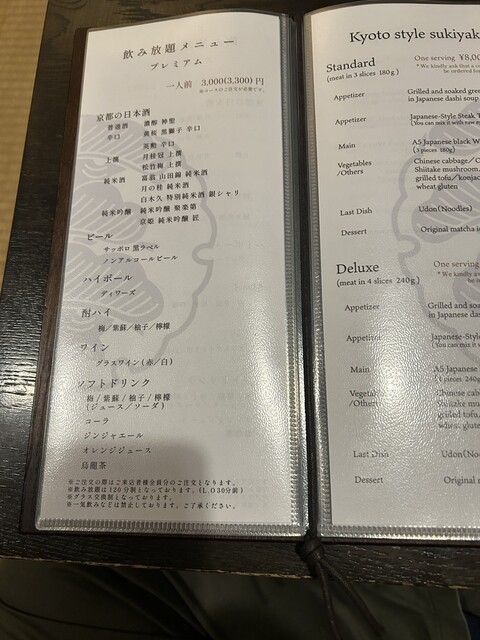 飲み放題メニュー
プレミアム
一人前 3,000(3,300)円
京都の日本酒
普通酒 濃醇 神聖
辛口 黄桜 黒獅子 辛口
英勲 辛口
上撰 月桂冠 上撰
松竹梅 上撰
純米酒 富翁 山田錦 純米酒
月の桂 純米酒
白木久 特別純米酒 銀シャリ
純米吟醸 純米吟醸 聚楽第
京姫 純米吟醸 匠
ビール
サッポロ黒ラベル
ノンアルコールビール
ハイボール
ディワーズ
酎ハイ
梅/紫蘇/柚子/檸檬
ワイン
グラスワイン(赤/白)
ソフトドリンク
梅/紫蘇/柚子/檸檬
(ジュース/ソーダ)
コーラ
ジンジャエール
オレンジジュース
烏龍茶
※ご注文の際はご来店者様全員分のご注文となります。
※飲み放題は120分制となっております。(L.O30分前)
※グラス交換制となっております。
※一気飲みなどは禁止しております。ご了承ください。
Kyoto style sukiyak
Standard One serving ¥8,00
(meat in 3 slices 180g) *We kindly ask that a c
be ordered for
Appetizer Grilled and soaked gree
in Japanese dashi soup
Appetizer Japanese-Style Steak T
(You can mix it with raw eg
Main A5 Japanese black W
(3 pieces 180g)
Vegetables Chinese cabbage/C
/Others Shiitake mushroom,
grilled tofu/konjac
wheat gluten
Last Dish Udon(Noodles)
Dessert Original matcha i
Deluxe One serving
(meat in 4 slices 240g) *We kindly a
be
Appetizer Grilled and soa
in Japanese das
Appetizer Japanese-Style
(You can mix it w
Main A5 Japanese
(4 pieces 240g
Vegetables Chinese cabb
/Others Shiitake mu
grilled tofu,
wheat gluten
Last Dish Udon(Noo
Dessert Original m